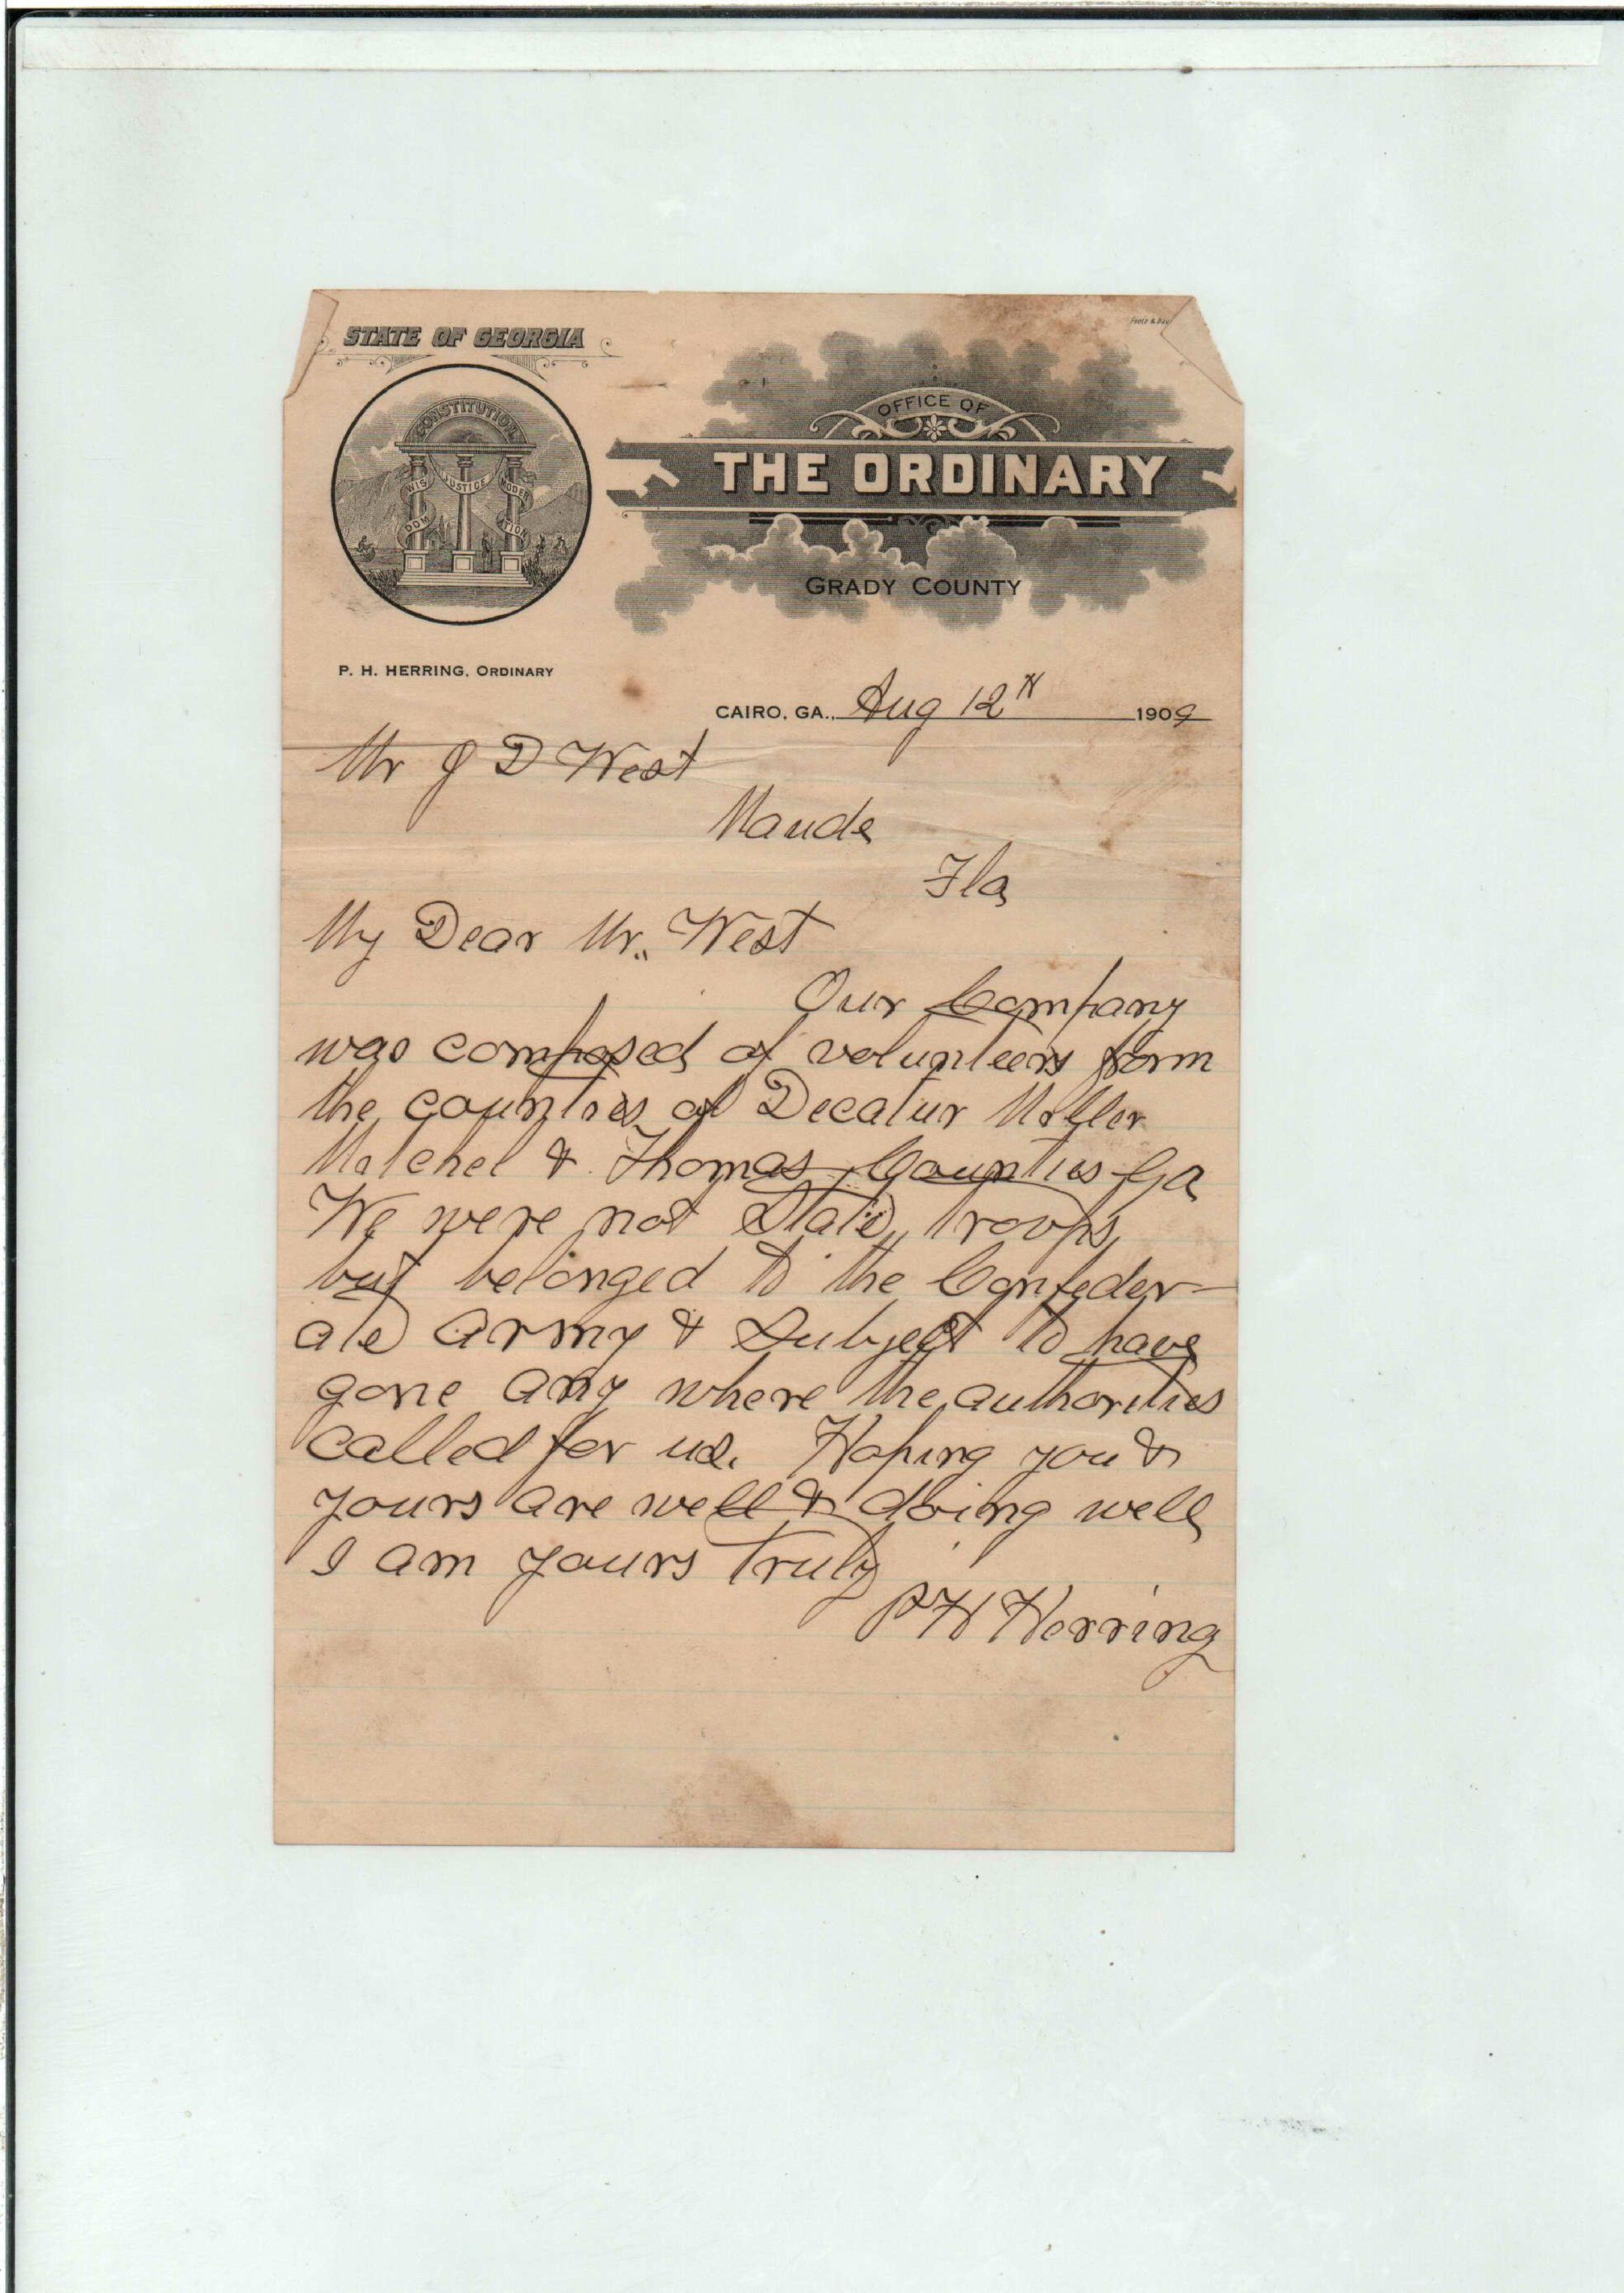 STATE OF GEORGIA
CONSTITUTION
WIS DOM
JUSTICE
MODER ATION
OFFICE OF
THE ORDINARY
GRADY COUNTY
P. H. HERRING, ORDINARY
CAIRO, GA., Aug 12th 1909
Mr J D West
Maude
Fla
My Dear Mr. West
Our Company
was composed of volunteers form
the counties of Decatur Miller
Mitchel & Thomas, Counties Ga
We were not State, Troops,
but belonged to the Confeder-
ate Army & Subject to have
gone any where the authorities
called for us. Hoping you &
yours are well & doing well
I am yours Truly
P H Herring